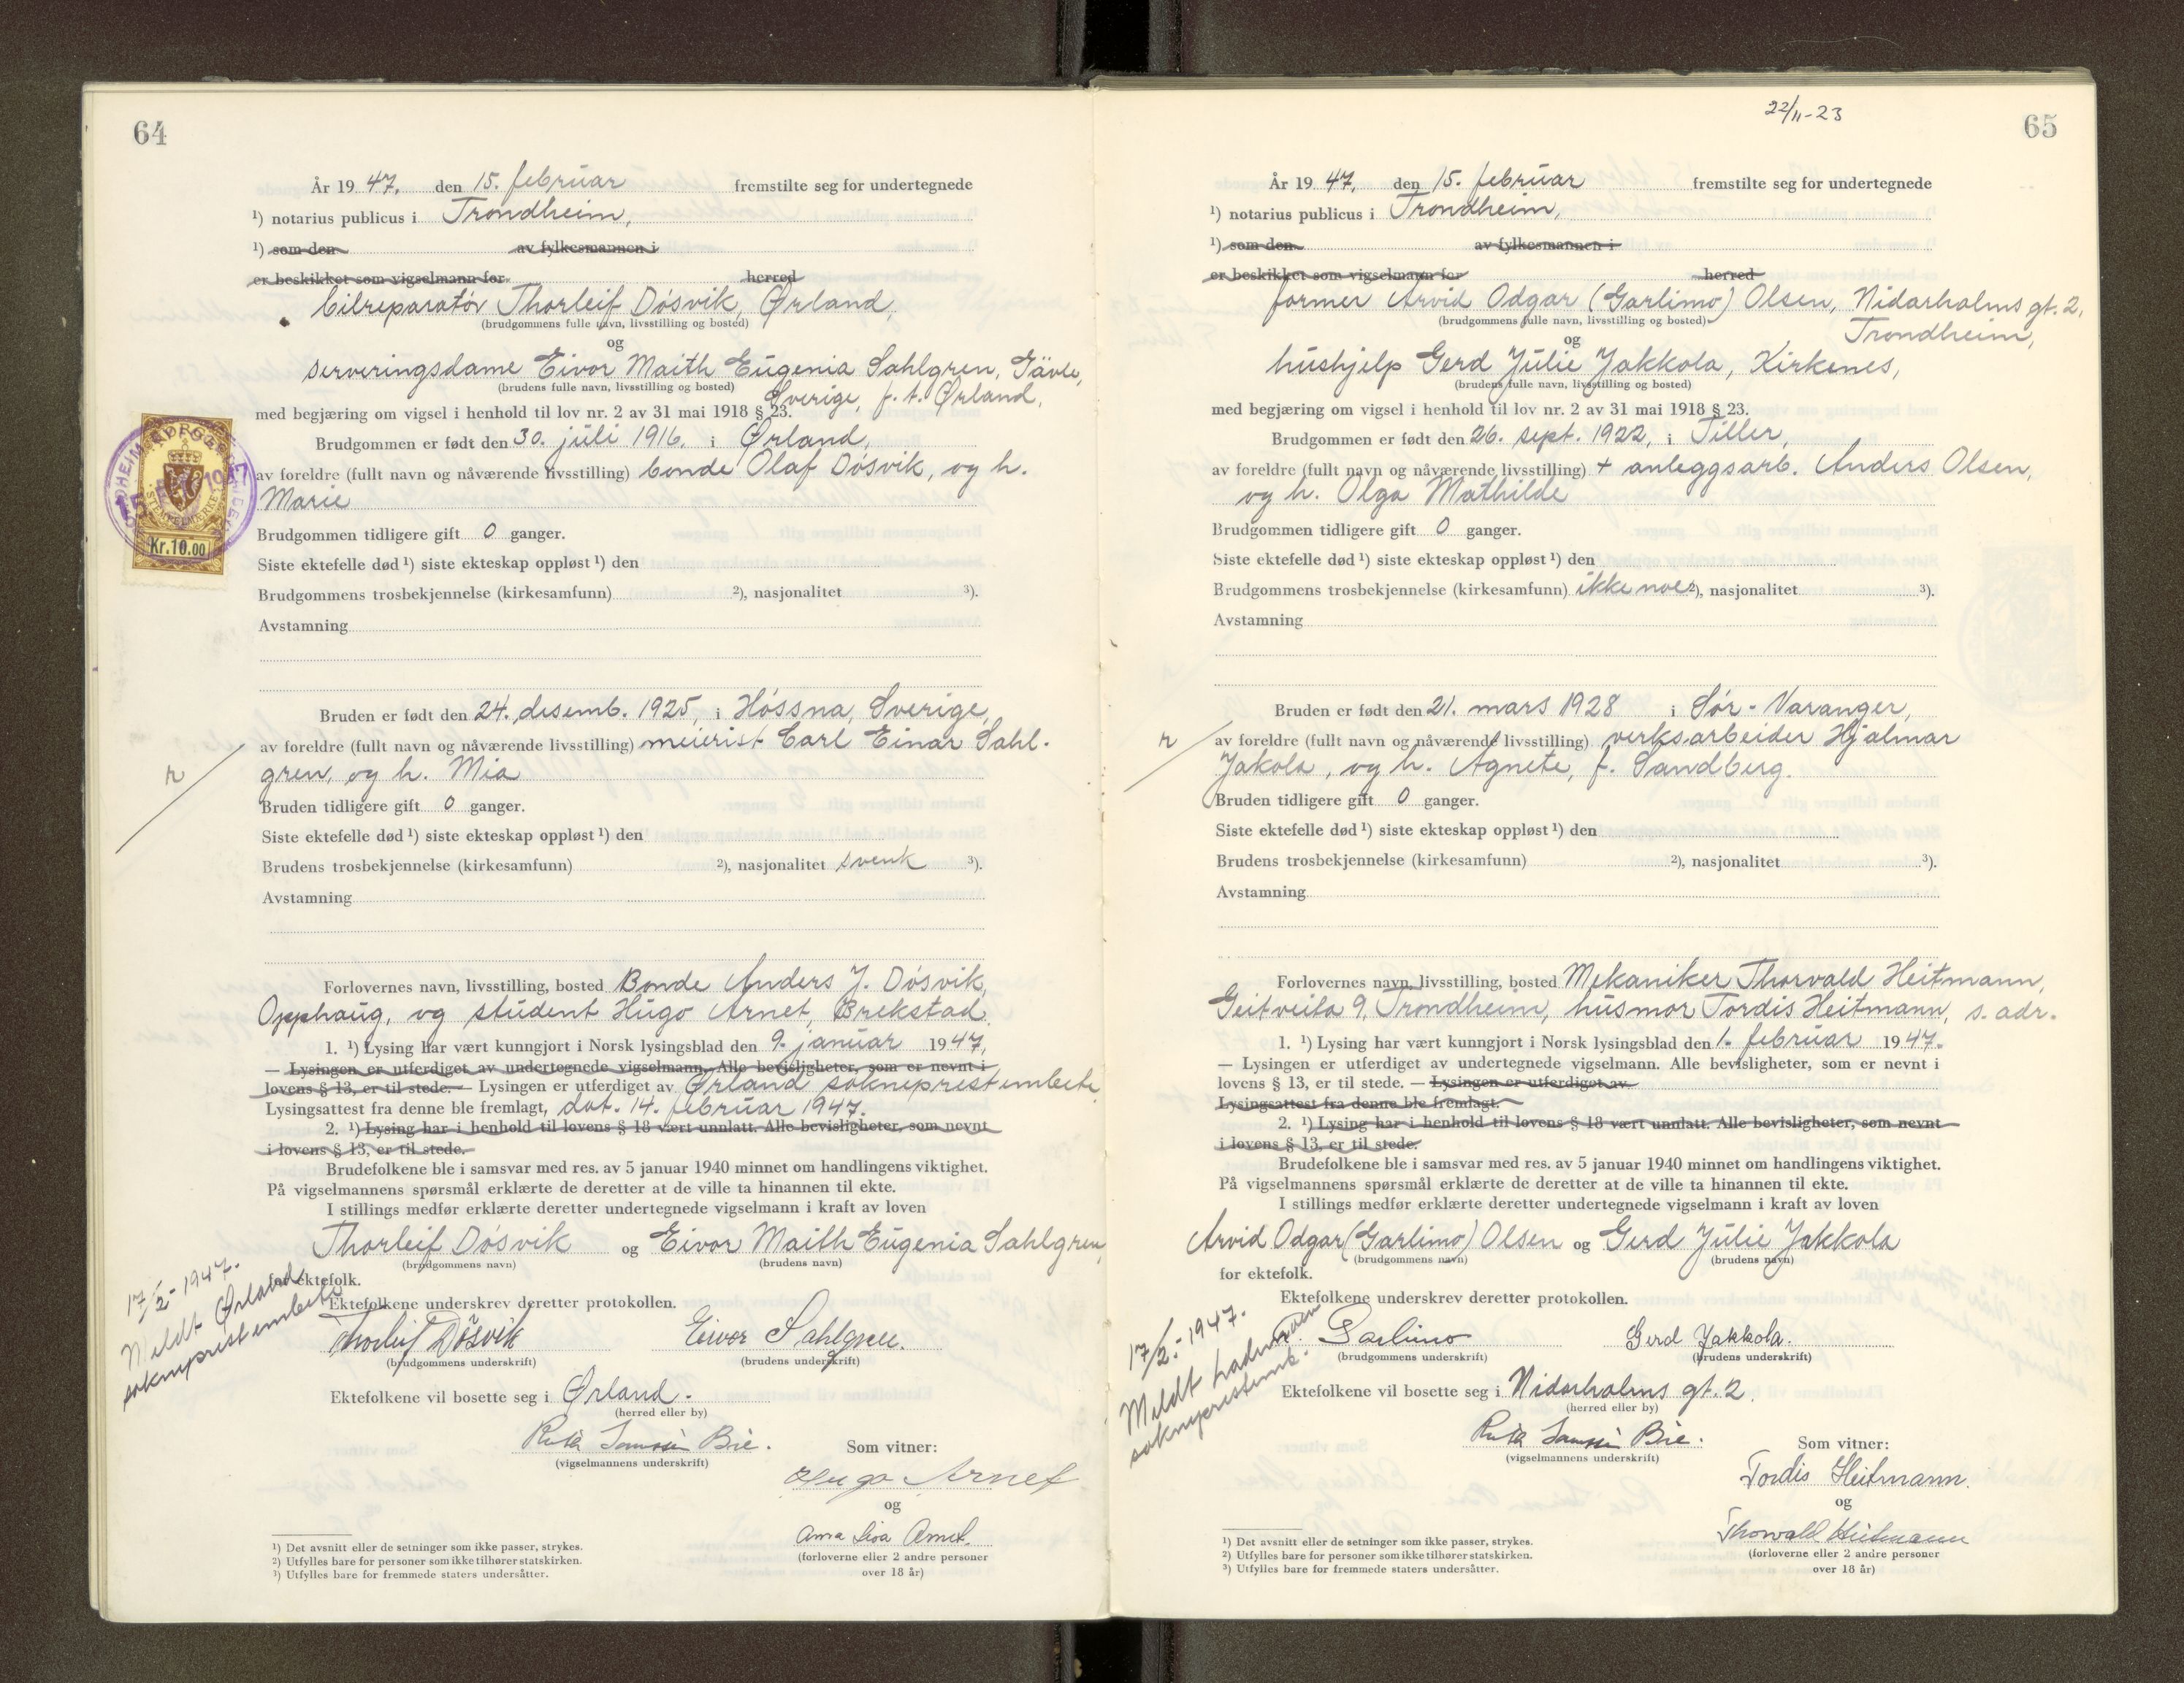 64
År 19 47. den 15. februar fremstilte seg for undertegnede
¹) notarius publicus i Trondheim,
¹) som den av fylkesmannen i
er beskikket som vigselmann for herred
bilreparatør Thorleif Døsvik, Ørland,
(brudgommens fulle navn, livsstilling og bosted)
og
serveringsdame Eivor Maith Eugenia Sahlgren, Gävle,
(brudens fulle navn, livsstilling og bosted) Sverige, f. t. Ørland,
med begjæring om vigsel i henhold til lov nr. 2 av 31 mai 1918 § 23.
Brudgommen er født den 30. juli 1916. i Ørland,
av foreldre (fullt navn og nåværende livsstilling) bonde Olaf Døsvik, og h.
Marie
Kr.10.00
Brudgommen tidligere gift 0 ganger.
Siste ektefelle død ¹) siste ekteskap oppløst ¹) den
Brudgommens trosbekjennelse (kirkesamfunn) ²), nasjonalitet ³).
Avstamning
Bruden er født den 24. desemb. 1925, i Høssna, Sverige,
av foreldre (fullt navn og nåværende livsstilling) meierist Carl Einar Sahl-
gren, og h. Mia
r
Bruden tidligere gift 0 ganger.
Siste ektefelle død ¹) siste ekteskap oppløst ¹) den
Brudens trosbekjennelse (kirkesamfunn) ²), nasjonalitet svenk ³).
Avstamning
Forlovernes navn, livsstilling, bosted Bonde Anders J. Døsvik,
Opphaug, og student Hugo Arnet, Brekstad.
1. ¹) Lysing har vært kunngjort i Norsk lysingsblad den 9. januar 1947,
— Lysingen er utferdiget av undertegnede vigselmann. Alle bevisligheter, som er nevnt i
lovens § 13, er til stede. — Lysingen er utferdiget av Ørland sokneprestembete.
Lysingsattest fra denne ble fremlagt, dat. 14. februar 1947.
2. ¹) Lysing har i henhold til lovens § 18 vært unnlatt. Alle bevisligheter, som nevnt
i lovens § 13, er til stede.
Brudefolkene ble i samsvar med res. av 5 januar 1940 minnet om handlingens viktighet.
På vigselmannens spørsmål erklærte de deretter at de ville ta hinannen til ekte.
I stillings medfør erklærte deretter undertegnede vigselmann i kraft av loven
Thorleif Døsvik og Eivor Maith Eugenia Sahlgren,
(brudgommens navn) (brudens navn)
for ektefolk.
17/2-1947.
Meldt Ørland
sokneprestembete
Ektefolkene underskrev deretter protokollen.
Thorleif Døsvik Eivor Sahlgren.
(brudgommens underskrift) (brudens underskrift)
Ektefolkene vil bosette seg i Ørland.
(herred eller by)
Bie.
(vigselmannens underskrift)
Som vitner:
Hugo Arnet
og
Anna Lisa Arnet.
(forloverne eller 2 andre personer
over 18 år)
¹) Det avsnitt eller de setninger som ikke passer, strykes.
²) Utfylles bare for personer som ikke tilhører statskirken.
³) Utfylles bare for fremmede staters undersåtter.
22/11-23
65
År 19 47. den 15. februar fremstilte seg for undertegnede
¹) notarius publicus i Trondheim,
¹) som den av fylkesmannen i
er beskikket som vigselmann for herred
former Arvid Odgar (Garlimo) Olsen, Nidarholms gt. 2,
(brudgommens fulle navn, livsstilling og bosted) Trondheim,
og
hushjelp Gerd Julie Jakkola, Kirkenes,
(brudens fulle navn, livsstilling og bosted)
med begjæring om vigsel i henhold til lov nr. 2 av 31 mai 1918 § 23.
Brudgommen er født den 26. sept. 1922, i Tiller,
av foreldre (fullt navn og nåværende livsstilling) + anleggsarb. Anders Olsen,
og h. Olga Mathilde
Brudgommen tidligere gift 0 ganger.
Siste ektefelle død ¹) siste ekteskap oppløst ¹) den
Brudgommens trosbekjennelse (kirkesamfunn) ikke noe ²), nasjonalitet ³).
Avstamning
Bruden er født den 21. mars 1928 i Sør-Varanger,
r
av foreldre (fullt navn og nåværende livsstilling) verksarbeider Hjalmar
Jakola, og h. Agnete, f. Sandberg.
Bruden tidligere gift 0 ganger.
Siste ektefelle død ¹) siste ekteskap oppløst ¹) den
Brudens trosbekjennelse (kirkesamfunn) ²), nasjonalitet ³).
Avstamning
Forlovernes navn, livsstilling, bosted Mekaniker Thorvald Heitmann,
Geitveita 9, Trondheim, husmor Tordis Heitmann, s. adr.
1. ¹) Lysing har vært kunngjort i Norsk lysingsblad den 1. februar 1947.
— Lysingen er utferdiget av undertegnede vigselmann. Alle bevisligheter, som er nevnt i
lovens § 13, er til stede. — Lysingen er utferdiget av
Lysingsattest fra denne ble fremlagt.
2. ¹) Lysing har i henhold til lovens § 18 vært unnlatt. Alle bevisligheter, som nevnt
i lovens § 13, er til stede.
Brudefolkene ble i samsvar med res. av 5 januar 1940 minnet om handlingens viktighet.
På vigselmannens spørsmål erklærte de deretter at de ville ta hinannen til ekte.
I stillings medfør erklærte deretter undertegnede vigselmann i kraft av loven
Arvid Odgar (Garlimo) Olsen og Gerd Julie Jakkola
(brudgommens navn) (brudens navn)
for ektefolk.
17/2-1947.
Meldt Lademoen
sokneprestemb.
Ektefolkene underskrev deretter protokollen.
Garlimo Gerd Jakkola.
(brudgommens underskrift) (brudens underskrift)
Ektefolkene vil bosette seg i Nidarholms gt. 2.
(herred eller by)
Bie.
(vigselmannens underskrift)
Som vitner:
Tordis Heitmann.
og
Thorvald Heitmann
(forloverne eller 2 andre personer
over 18 år)
¹) Det avsnitt eller de setninger som ikke passer, strykes.
²) Utfylles bare for personer som ikke tilhører statskirken.
³) Utfylles bare for fremmede staters undersåtter.